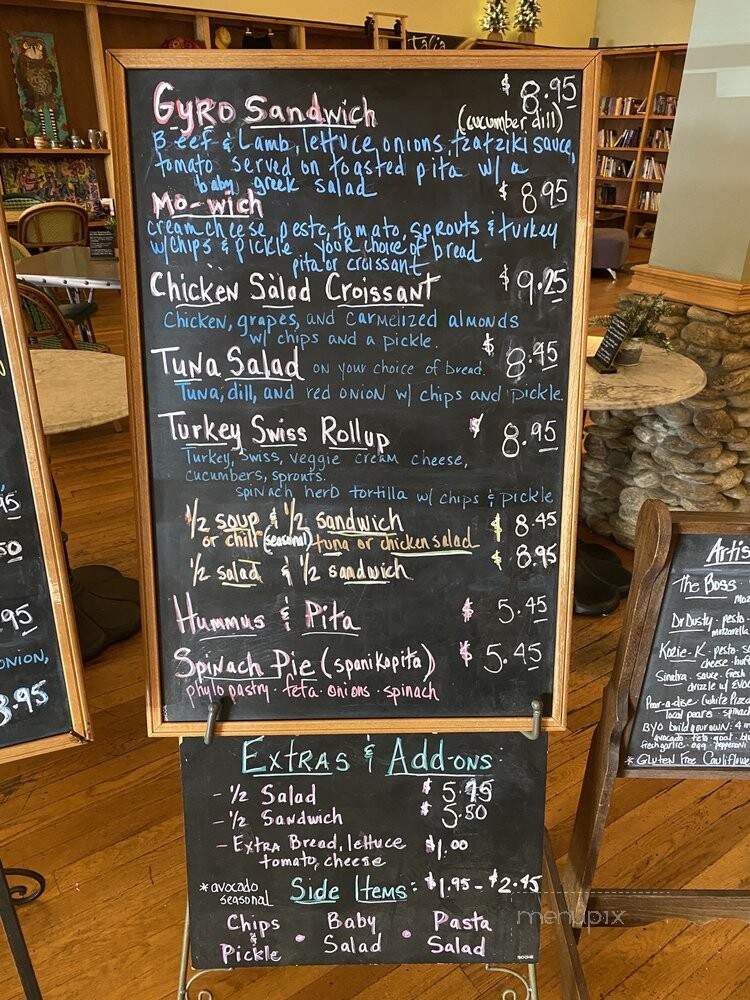 Gyro Sandwich $8.95
(cucumber dill)
Beef & Lamb, lettuce onions, tzatziki sauce,
tomato served on toasted pita w/ a
baby greek salad
Mo-wich $8.95
cream cheese, pesto, tomato, sprouts & turkey
w/chips & pickle your choice of bread
pita or croissant
Chicken Salad Croissant $9.25
Chicken, grapes, and carmelized almonds
w/ chips and a pickle.
Tuna Salad on your choice of bread. $8.45
Tuna, dill, and red onion w/ chips and pickle.
Turkey Swiss Rollup $8.95
Turkey, Swiss, veggie cream cheese,
cucumbers, sprouts.
spinach herb tortilla w/ chips & pickle
1/2 soup & 1/2 sandwich $8.45
or chili (seasonal) tuna or chicken salad
1/2 salad & 1/2 sandwich $8.95
Hummus & Pita $5.45
Spinach Pie (spanikopita) $5.45
phylo pastry · feta · onions · spinach
Extras & Add-ons
- 1/2 Salad
- 1/2 Sandwich $5.50
- Extra Bread, lettuce $1.00
tomato, cheese
*avocado
seasonal
Side Items: $1.95 - $2.45
Chips & Pickle · Baby Salad · Pasta Salad
95
onion,
8.95
Artis
The Boss
Dr Dusty · pesto ·
mozzarella
Kozie-K · pesto ·
Sinatra · sauce · fresh
drizzle w/
Pear-a-dise (white
local pears · spinach
BYO build your own:
avocado · feta · goat ·
fresh garlic · egg · pepperoni
* Gluten Free Cauliflow
menupix